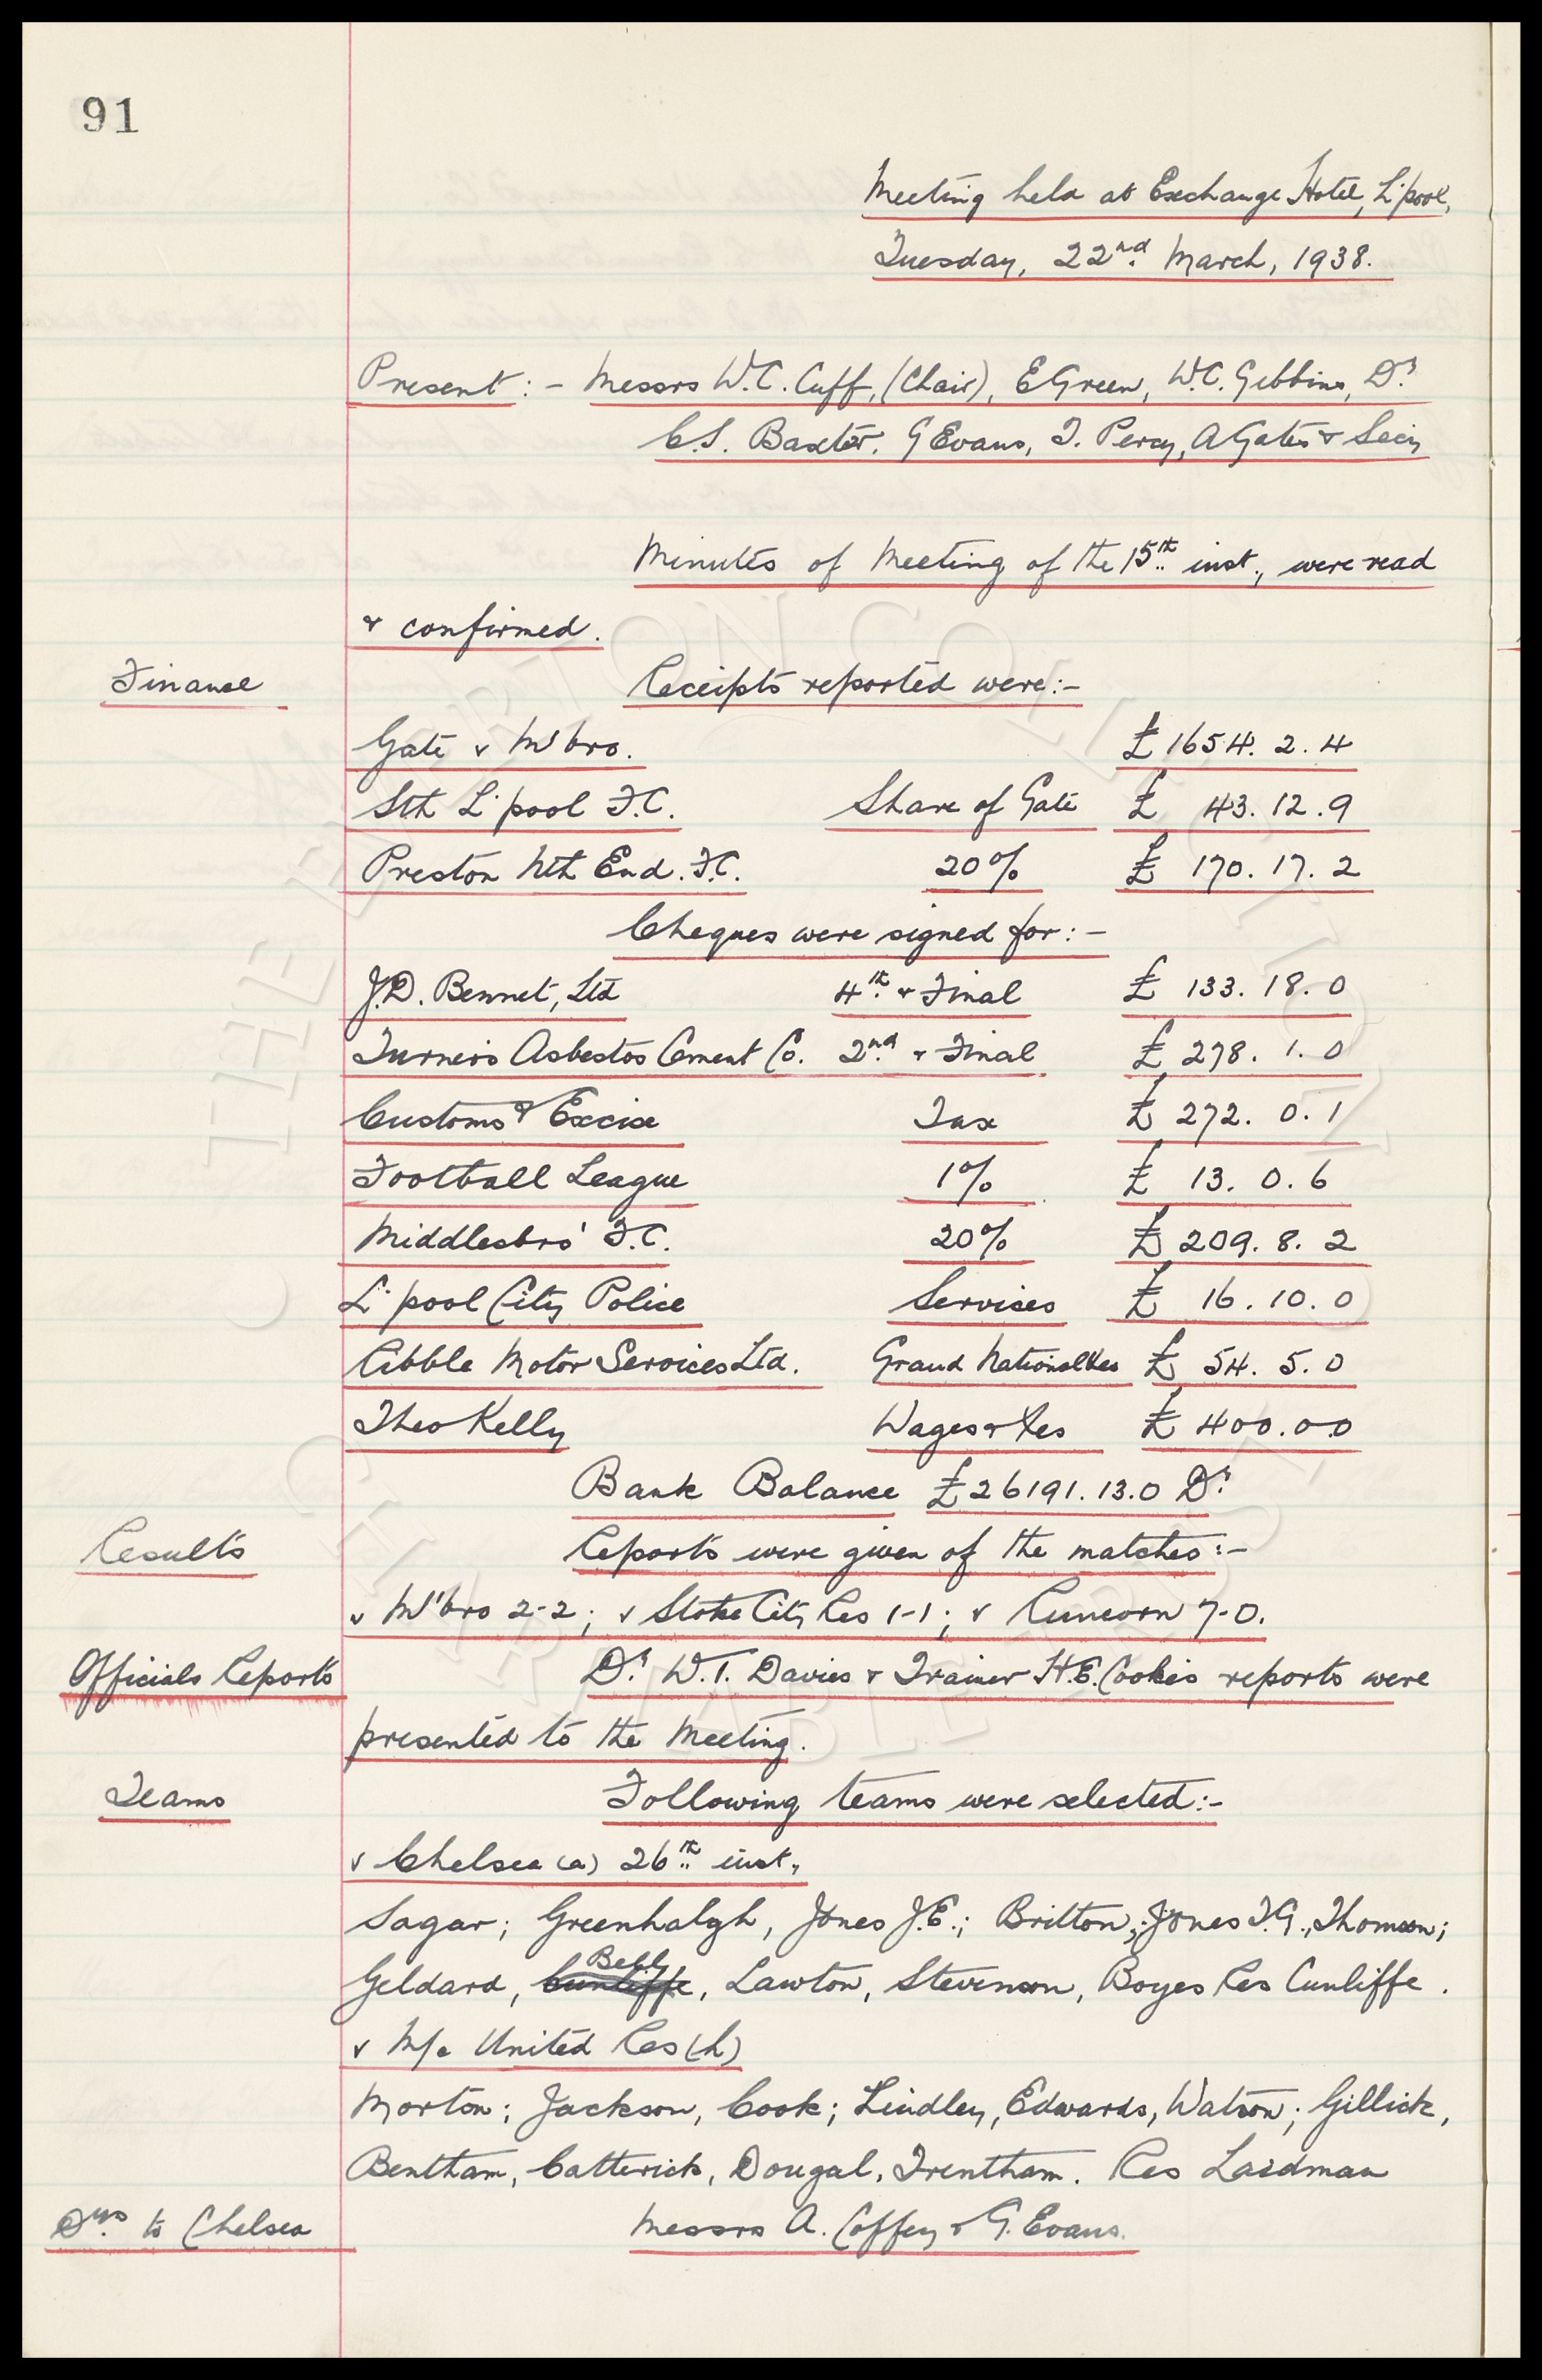 91
Meeting held at Exchange Hotel, L'pool,
Tuesday, 22nd March, 1938.
Present :- Messrs W.C. Cuff, (Chair), E Green, W.C. Gibbins, Dr
C.S. Baxter, G Evans, T. Percy, A Gates & Secy
Minutes of Meeting of the 15th inst., were read
& confirmed.
Finance
Receipts reported were:-
Gate v M'bro. £1654. 2. 4
Sth L'pool F.C. Share of Gate £ 43. 12. 9
Preston Nth End. F.C. 20% £ 170. 17. 2
Cheques were signed for:-
J.D. Bennet, Ltd 4th & Final £ 133. 18. 0
Turners Asbestos Cement Co. 2nd & Final £ 278. 1. 0
Customs & Excise Tax £ 272. 0. 1
Football League 1% £ 13. 0. 6
Middlesbro' F.C. 20% £ 209. 8. 2
L'pool City Police Services £ 16. 10. 0
Ribble Motor Services Ltd. Grand National £ 54. 5. 0
Theo Kelly Wages & £ 400. 0. 0
Bank Balance £26191. 13. 0 Dr
Results
Reports were given of the matches:-
v M'bro 2-2; v Stoke City Res 1-1; v Runcorn 7-0.
Officials Reports
Dr W.T. Davies & Trainer H.E. Cooke's reports were
presented to the Meeting.
Teams
Following teams were selected:-
v Chelsea (a) 26th inst,
Sagar; Greenhalgh, Jones J.E.; Britton, Jones T.G., Thomson;
Geldard, Cunliffe Bell, Lawton, Stevenson, Boyes Res Cunliffe.
v M/c United Res (h)
Morton; Jackson, Cook; Lindley, Edwards, Watson; Gillick,
Bentham, Catterick, Dougal, Trentham. Res Laidman
Drs to Chelsea
Messrs A. Coffey & G. Evans.
THE EVERTON COLLECTION
CHARITABLE TRUST